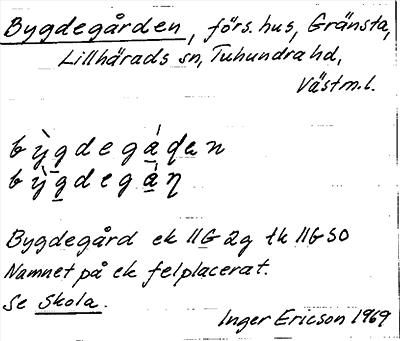 Bygdegården, förs. hus, Gränsta,
Lillhärads sn, Tuhundra hd,
Västm.l.
bỳgdegá̱ɖen
bỳg̱degá̱ɳ
Bygdegård ek 11G 2g tk 11G SO
Namnet på ek felplacerat.
Se Skola.
Inger Ericson 1969